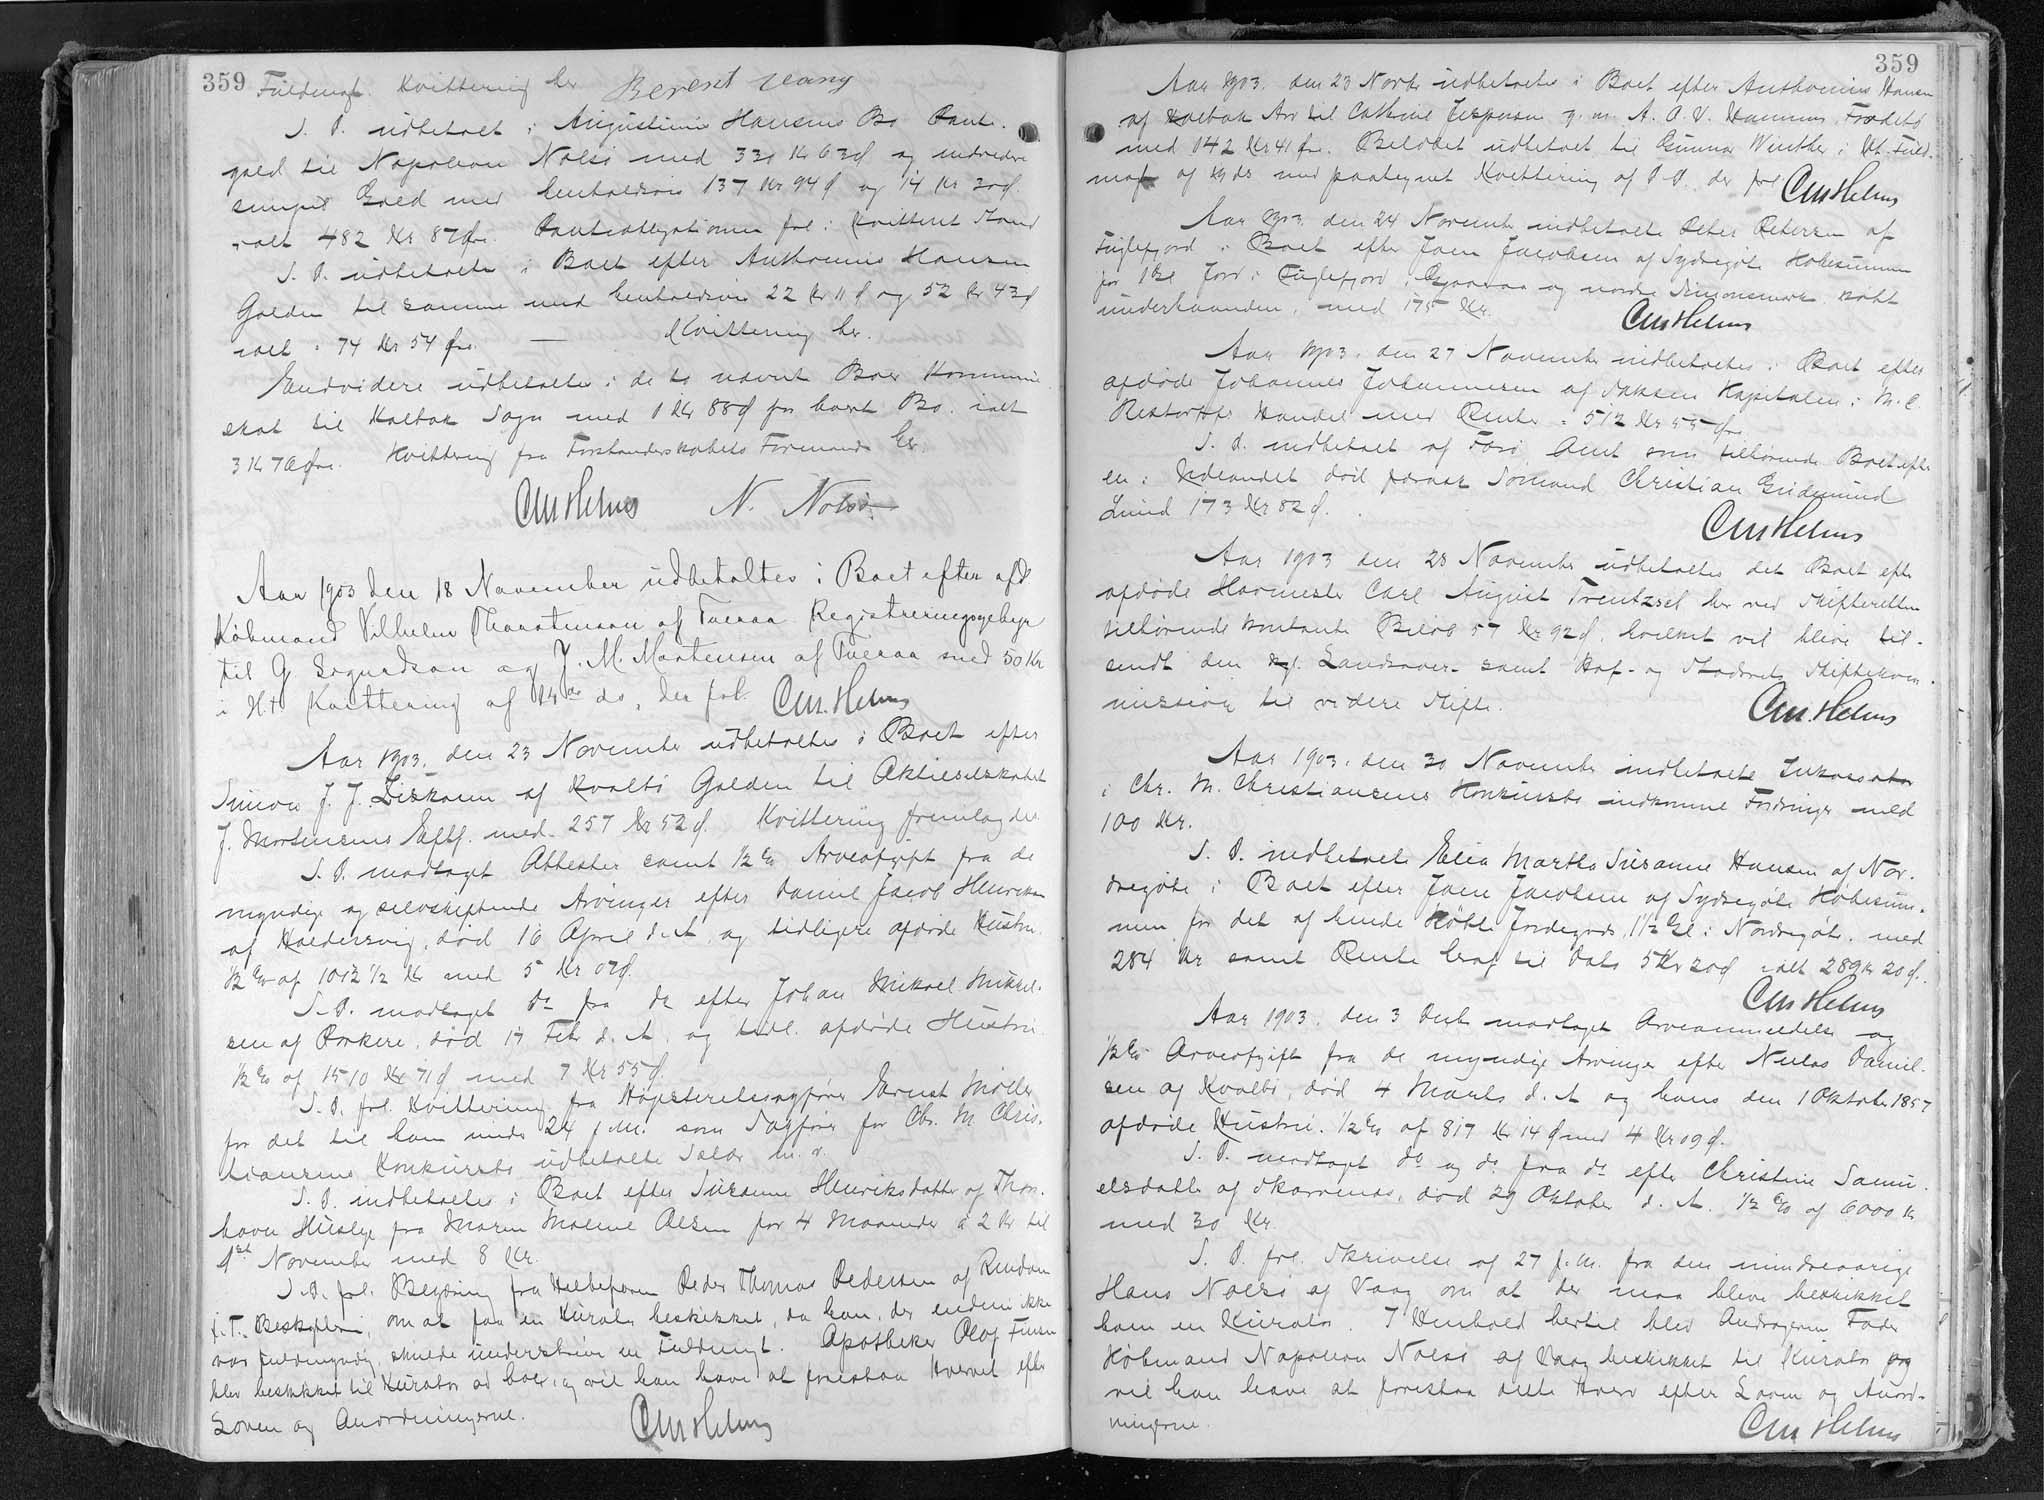 359
Fuldmagt. Kvittering her
S. D. udbetalt i Augustinus Hansens Bo Pante-
gæld til Napoleon Nolsø med 330 Kr 63 Ø og endvidere
simpel Gæld med henholdsvis 137 Kr 94 Ø og 14 Kr 30 Ø.
ialt 482 Kr 87 Øre. Panteobligationen frl. i kvitteret Stand
S. D. udbetaltes i Boet efter Anthonius Hansen
Gælden til samme med henholdsvis 22 Kr 11 Ø og 52 Kr 43 Ø
ialt = 74 Kr 54 Øre. — Kvittering her.
Endvidere udbetaltes i de to nævnte Boer Kommune-
skat til Kalbak Sogn med 1 Kr 88 Ø for hvert Bo. ialt
3 Kr 76 Øre. Kvittering fra Forstanderskabets Formand her.
CMHelms N. Nolsø
Aar 1903 den 18 November udbetaltes i Boet efter afd
Købmand Vilhelm Thorsteinson af Tveraa Registreringsgebyr
til G Sigurdson og J. M. Mortensen af Tveraa med 50 Kr
i Ht Kvittering af 14de ds, der frl. CM.Helms
Aar 1903. den 23 November udbetaltes i Boet efter
Simon J. J. Diskarn af Kvalbø Gælden til Aktieselskabet
J. Mortensens Eftf. med 257 Kr 52 Ø. Kvittering fremlagdes.
S. D. modtaget Attester samt ½ % Arveafgift fra de
myndige og selvskiftende Arvinger efter Daniel Jacob Henriksen
af Haldersvig, død 16 April d. A. og tidligere afdøde Hustru.
½ % af 1013 ½ Kr med 5 Kr 07 Ø.
S. D. modtaget do fra do efter Johan Mikael Mikkel-
sen af Porkere, død 17 Feb d. A. og tidl. afdøde Hustru
½ % af 1510 Kr 71 Ø med 7 Kr 55 Ø.
S. D. frl. Kvittering fra Højesteretssagfører Ernst Møller
for det til ham under 24 f. M. som Sagfører for Chr. M. Chris-
tiansens Konkursbo udbetalte Salær m. v.
S. D. indbetaltes i Boet efter Susanne Henriksdatter af Thors-
havn Husleje fra Maren Malene Olsen for 4 Maaneder a 2 Kr til
1st November med 8 Kr.
S. D. frl. Begæring fra Peder Thomas Pedersen af
om at faa en Kurator beskikket, da han, der endnu ikke
var fuldmyndig, skulde underskrive en Fuldmagt. Apotheker Olaf Finsen
blev beskikket til Kurator ad hoc, og vil han have at forestaa Hvervet efter
Loven og Anordningerne.
CMHelms
359
Aar 1903. den 23 Novbr udbetaltes i Boet efter Anthonius Hansen
af Kalbak Arv til Cathrine Jespersen g. m. A. O. V. Hammer, Trædebø
med 142 Kr 41 Øre. Beløbet udbetalt til Gunnar Winther i Ht. Fuld-
magt af ds med paategnet Kvittering af D. D. der frl. CMHelms
Aar 1903. den 24 November indbetalte Peter Petersen af
Fuglefjord i Boet efter Joen Jacobsen af Sydregøte Købesummen
for Jord i Fuglefjord, og nordre Simonsmark købt
underhaanden, med 175 Kr. CMHelms
Aar 1903. den 27 November indbetaltes i Boet efter
afdøde Johannes Johannesen af Kapitalen i M. C.
Restorffs Handel med Rente = 512 Kr 55 Øre
S. D. indbetalt af Færø Amt som tilhørende Boet efter
en i Udlandet død færøsk Sømand Christian Gudmund
Lund 173 Kr 82 Ø.
CMHelms
Aar 1903 den 28 November udbetaltes det Boet efter
afdøde Havnemester Carl August Trentzsel her ved Skifteretten
tilhørende kontante Beløb 57 Kr 92 Ø, hvilket vil blive til-
sendt den kgl. Landsover- samt Hof- og Stadsrets Skiftekom-
mission til videre Skifte. CM.Helms
Aar 1903. den 30 November indbetalte Inkassator
i Chr. M. Christiansens Konkursbo indkomne Fordringer med
100 Kr.
S. D. indbetalte Elia Martha Susanne Hansen af Nor-
dregøte i Boet efter Joen Jacobsen af Sydregøte Købesum-
men for det af hende købte Jordegods, 1½ Gl. i Nordregøte. med
284 Kr samt Rente heraf til Dato 5 Kr 20 Ø ialt 289 Kr 20 Ø.
CMHelms
Aar 1903. den 3 Decbr modtaget Arveanmeldelse og
½ % Arveafgift fra de myndige Arvinger efter Niclas Daniel-
sen af Kvalbø, død 4 Marts d. A. og hans den 1 Oktober 1857
afdøde Hustru. ½ % af 817 Kr 14 Ø med 4 Kr 09 Ø.
S. D. modtaget do og do fra do efter Christine Samu-
elsdatter af Skarvenæs, død 29 Oktober d. A. ½ % af 6000 Kr
med 30 Kr.
S. D. frl. Skrivelse af 27 f. M. fra den mindreaarige
Hans Nolsø af Vaag om at der maa blive beskikket
ham en Kurator. I Henhold hertil blev Andragerens Fader
Købmand Napoleon Nolsø af Vaag beskikket til Kurator og
vil han have at forestaa dette Hverv efter Loven og Anord-
ningerne.
CMHelms